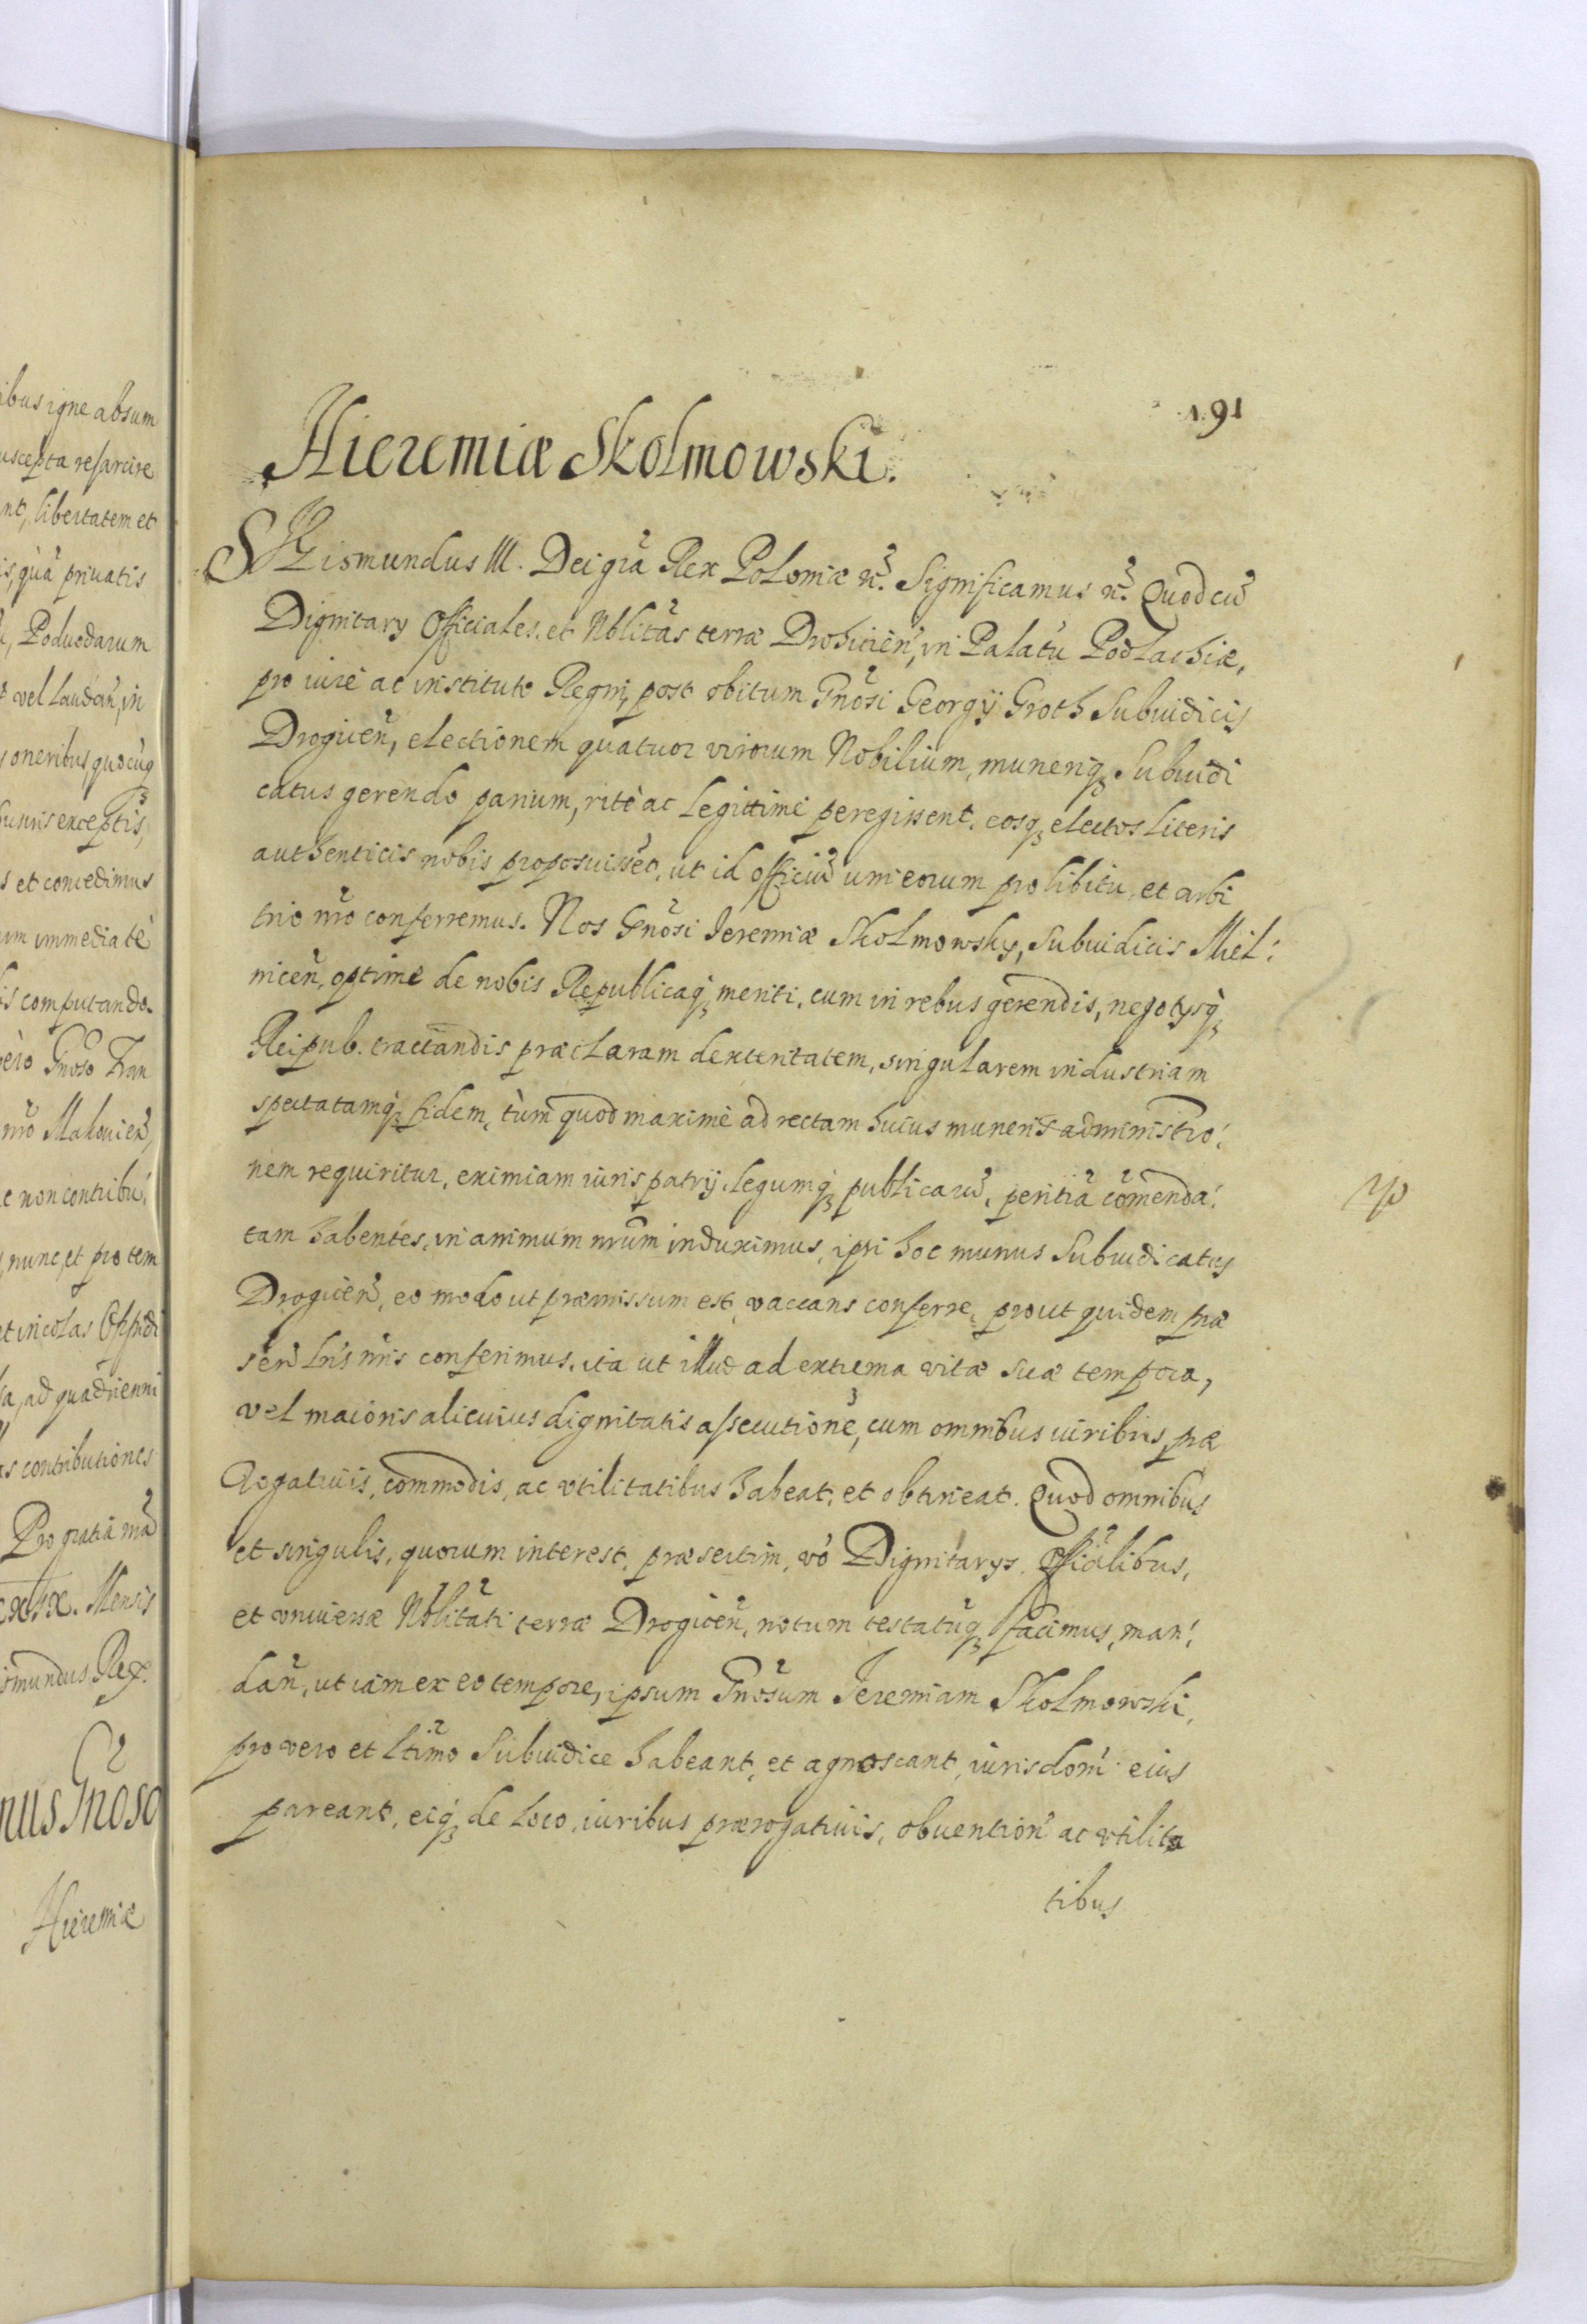 ibus igne absum
uscepta resarcire
nt, libertatem et
is, quã priuatis
Poduodarum
vel laudañ, in
oneribus, quocũq
exceptis,
s et concedimus
um immediatè
is computando.
Gnõso Fran
nrõ Makouień
e non contribu
nunc, et pro tem
et incolas Oppidi
ad quadrienni
as contributiones
Pro gratiã
Mensis
ismundus Rex.
nus Gñoso
Hieremiæ
191
Hieremiæ Skolmowski.
SIgismundus III. Dei grã Rex Poloniæ rc̃. Significamus rc̃. Quod cũ
Dignitary Officiales, et Nblitãs terræ Drohicieñ, in Palatũ Podlachiæ,
pro iure ac instituto Regni, post obitum Gnõsi Georgij Groth Subiudicis
Drogiceñ, electionem quatuor virorum Nobilium, muneriq; Subiudi
catus gerendo parium, ritè ac legittime peregissent, eosq; electos literis
authenticis nobis proposuissẽt, ut id officiũ uni eorum pro libitu, et arbi
trio nrõ conferremus. Nos Gnõsi Jeremiæ Skolmowsky, Subiudicis Miel:
niceñ, optime de nobis Republicaq; meriti, cum in rebus gerendis, negotysq;
Reipub. tractandis præclaram dexteritatem, singularem industriam
spectatamq; fidem, tùm quod maximè ad rectam huius muneris administro:
nem requiritur, eximiam iuris patrij, legumq; publicarũ, peritiã cõmenda:
tam habentes, in animum nrũm induximus, ipsi hoc munus Subiudicatus
Drogiceñ, eo modo ut præmissum est, vaccans conferre, prout quidem præ
señ lrĩs nrĩs conferimus, ita ut illud ad extrema vitæ suæ tempora,
vel maioris alicuius dignitatis assecutionẽ, cum omnibus iuribus, præ
rogatiuis, commodis, ac vtilitatibus habeat, et obtineat. Quod omnibus
et singulis, quorum interest, præsertim, vò Dignitarys, Offiãlibus,
et vniuersæ Nblitãti terræ Drogiceñ, notum testatũq; facimus, man:
dañ, ut iam ex eo tempore, ipsum Gnõsum Jeremiam Skolmowski,
pro vero et ltĩmo Subiudice habeant, et agnoscant, iurisdoñi eius
pareant, eiq; de loco, iuribus prærogatiuis, obuentioñ ac vtilita
tibus